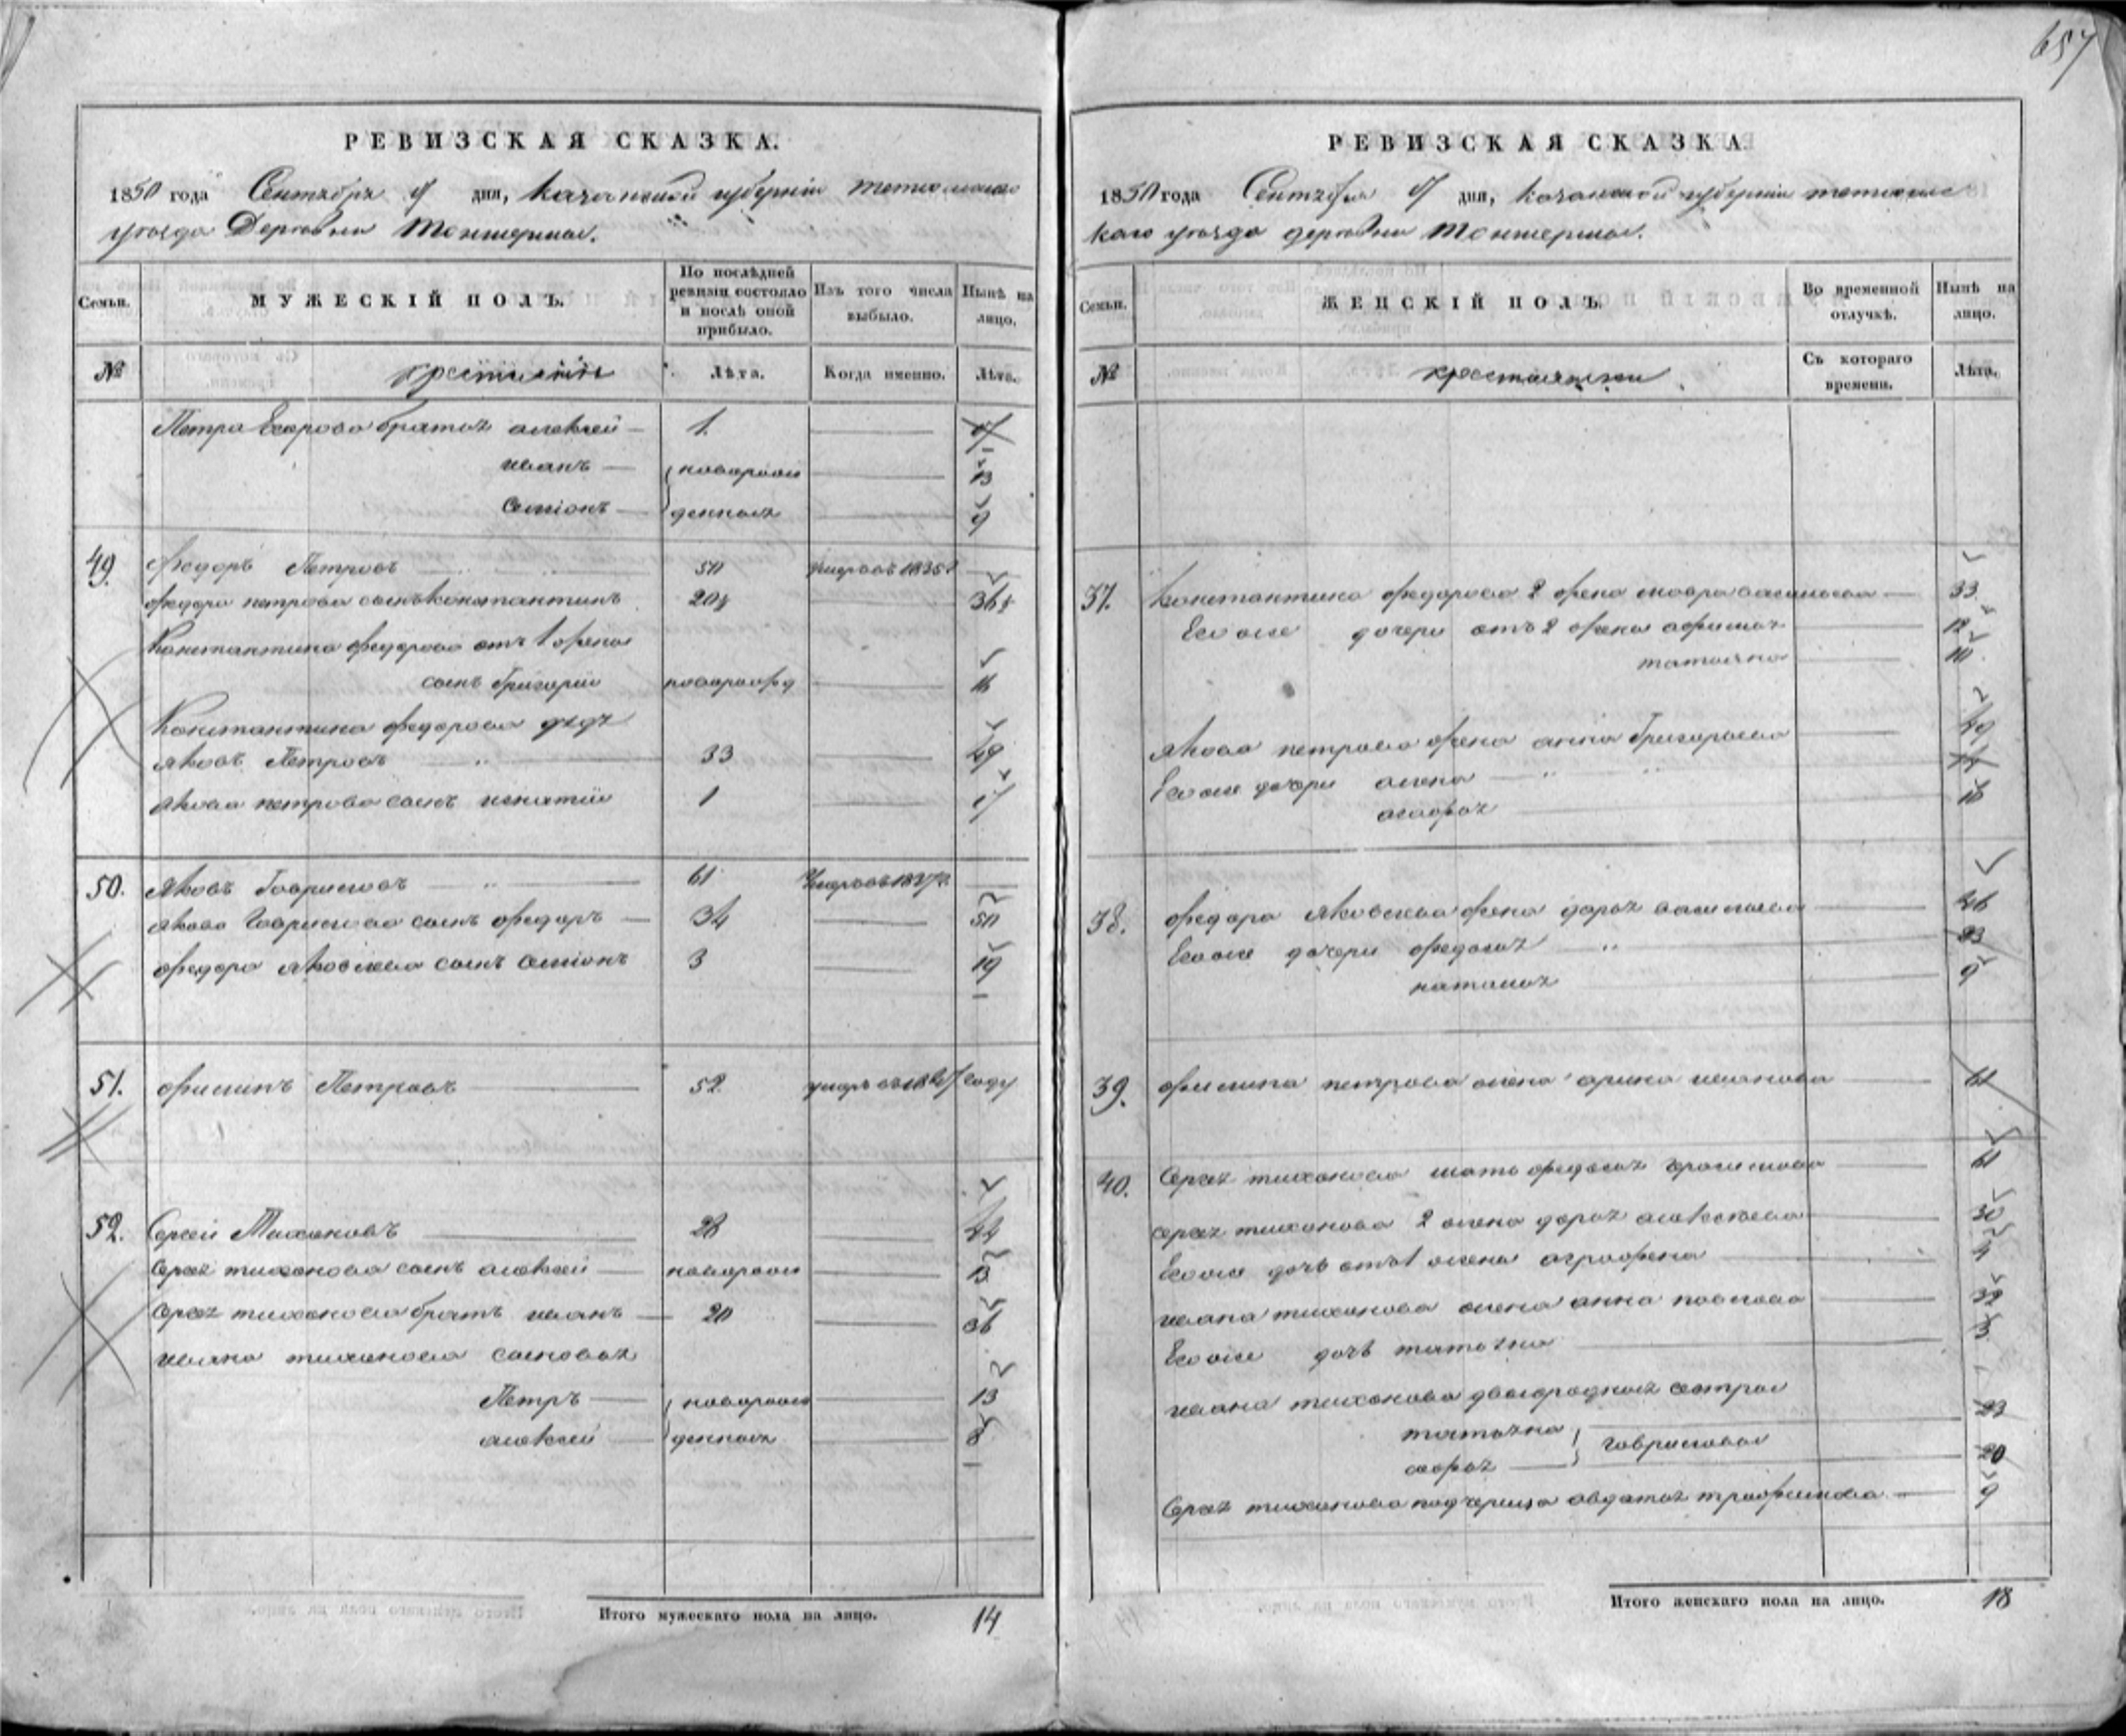 657
РЕВИЗСКАЯ СКАЗКА.
1850 года Сентября дня, Казанской губернии Тетюшскаго
уезда Деревни
Семьи.
МУЖЕСКІЙ ПОЛЪ.
По послѣдней ревизіи состояло и послѣ оной прибыло.
Изъ того числа выбыло.
Нынѣ на лицо.
№
крестьяне
Лѣта.
Когда именно.
Лѣта.
Петра Егорова братья алексей 1.
иванъ новорож 13
Семіонъ денные 9
49. Федоръ Петровъ 50 умеръ въ 1835
федора петрова сынъ константинъ 20 36
Константина федорова отъ 1 жены
сынъ Григорій новорожд 16
Константина федорова дядя
Яковъ Петровъ 33 49
Якова петрова сынъ игнатій 1 17
50. Яковъ Гавриловъ 61 умеръ въ
Якова Гаврилова сынъ федоръ 34 50
федора Яковлева сынъ Семіонъ 3 19
51. филипъ Петровъ 52 умеръ въ году
52. Сергей Тихоновъ 28 44
Сергея тихонова сынъ алексей новорож 13
Сергея тихонова братъ иванъ 20 36
ивана тихонова сыновья
Петръ новорож 13
алексей денные 8
Итого мужескаго пола на лицо. 14
РЕВИЗСКАЯ СКАЗКА
1850 года Сентября дня, Казанской губерніи тетюшс
каго уезда деревни
Семьи.
ЖЕНСКІЙ ПОЛЪ.
Во временной отлучкѣ.
Нынѣ на лицо.
№
крестьянки
Съ котораго времени.
Лѣта.
37. Константина федорова 2 жена мавра васильева 33
Его же дочери отъ 2 жены афимья 12
татьяна 10
Якова петрова жена анна Григорьева 49
Его же дочери алена
агафья 16
38. федора Яковлева жена дарья васильева 46
Его же дочери федосья 23
наталья 9
39. филипа петрова жена арина иванова 61
40. Сергея тихонова мать федосья герасимова 61
Сергея тихонова 2 жена дарья алексеева 30
Его же дочь отъ 1 жены аграфена 4
ивана тихонова жена анна павлова 32
Его же дочь татьяна 3
ивана тихонова двоюродныя сестры
татьяна Гавриловы 23
20
Сергея тихонова падчерица авдотья трофимова 9
Итого женскаго пола на лицо. 18